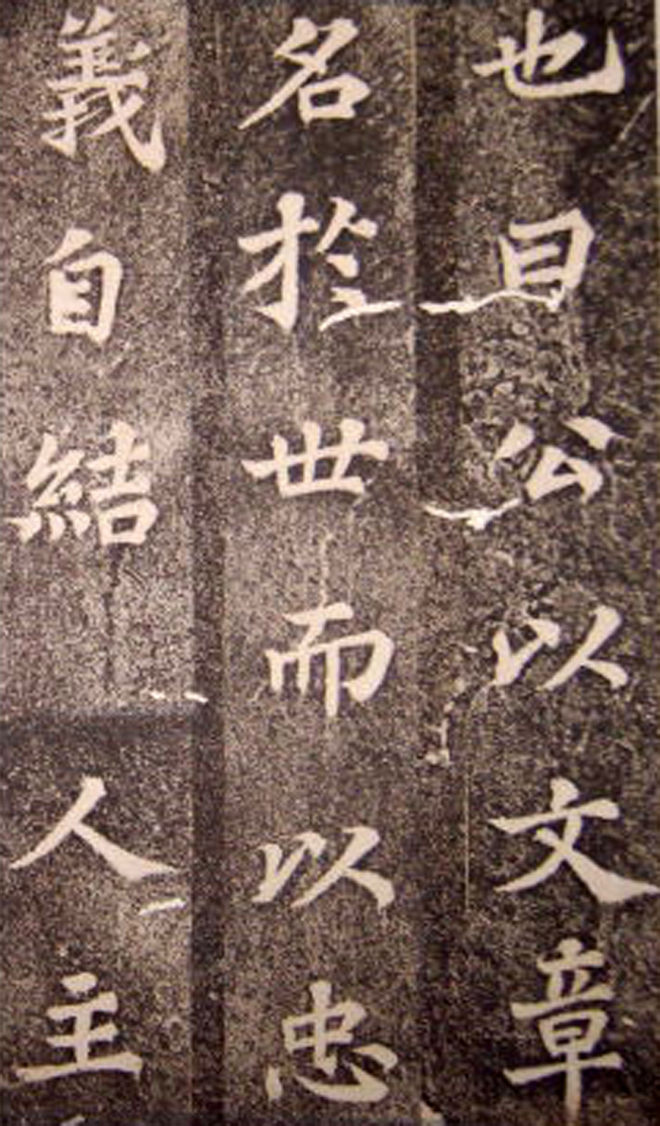 也目公以文章
名於世而以忠
義自結人主